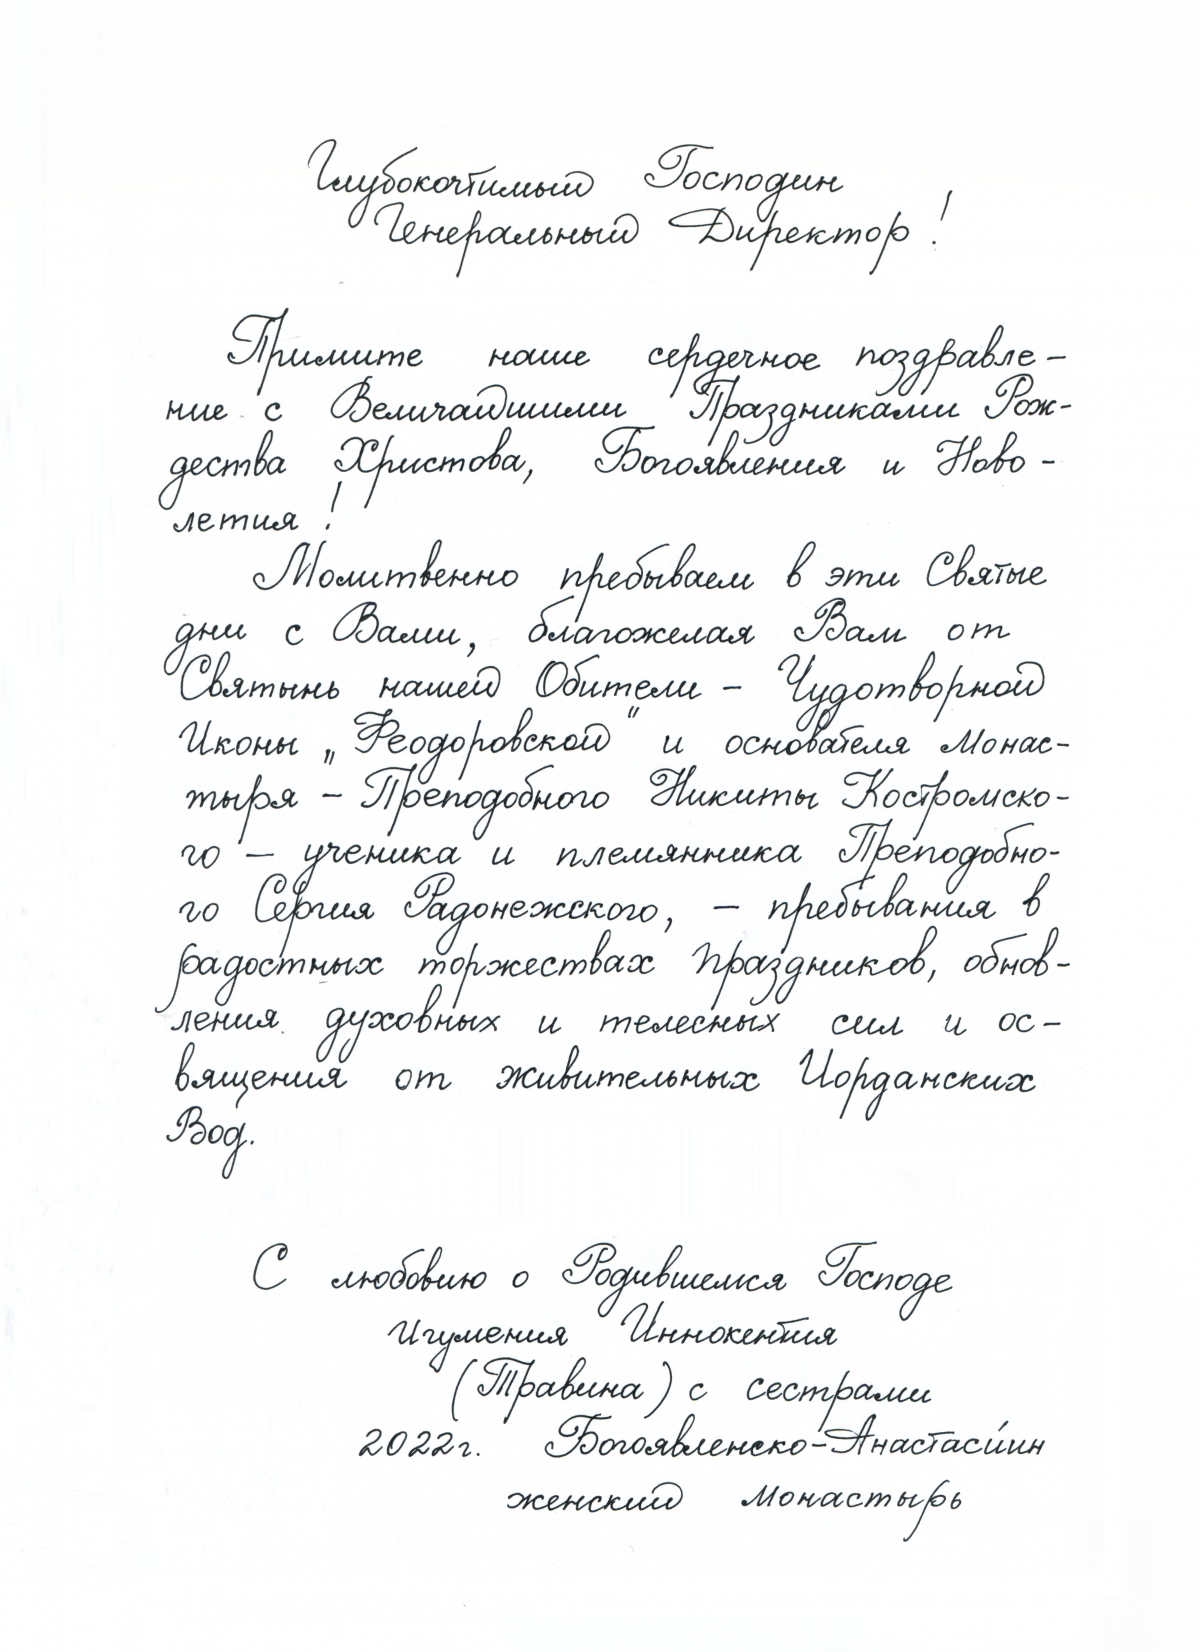 Глубокочтимый Господин
Генеральный Директор!
Примите наше сердечное поздравле-
ние с Величайшими Праздниками Рож-
дества Христова, Богоявления и Ново-
летия!
Молитвенно пребываем в эти Святые
дни с Вами, благожелая Вам от
Святынь нашей Обители - Чудотворной
Иконы „Феодоровской" и основателя Монас-
тыря - Преподобного Никиты Костромско-
го - ученика и племянника Преподобно-
го Сергия Радонежского, - пребывания в
радостных торжествах праздников, обнов-
ления духовных и телесных сил и ос-
вящения от живительных Иорданских
Вод.
С любовию о Родившемся Господе
Игумения Иннокентия
(Травина) с сестрами
2022г. Богоявленско-Анастасиин
женский монастырь